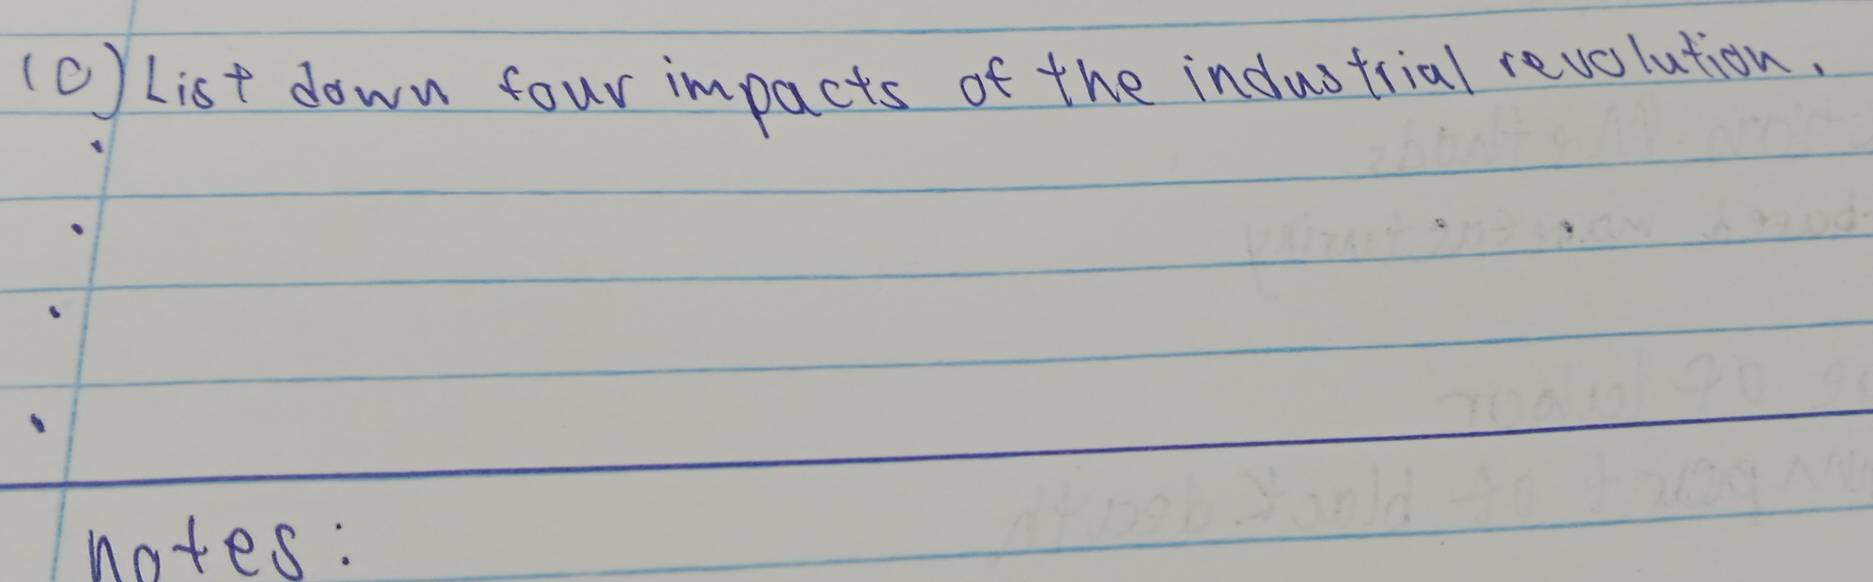 (c) List down four impacts of the industrial revolution.
•
•
•
•
notes: